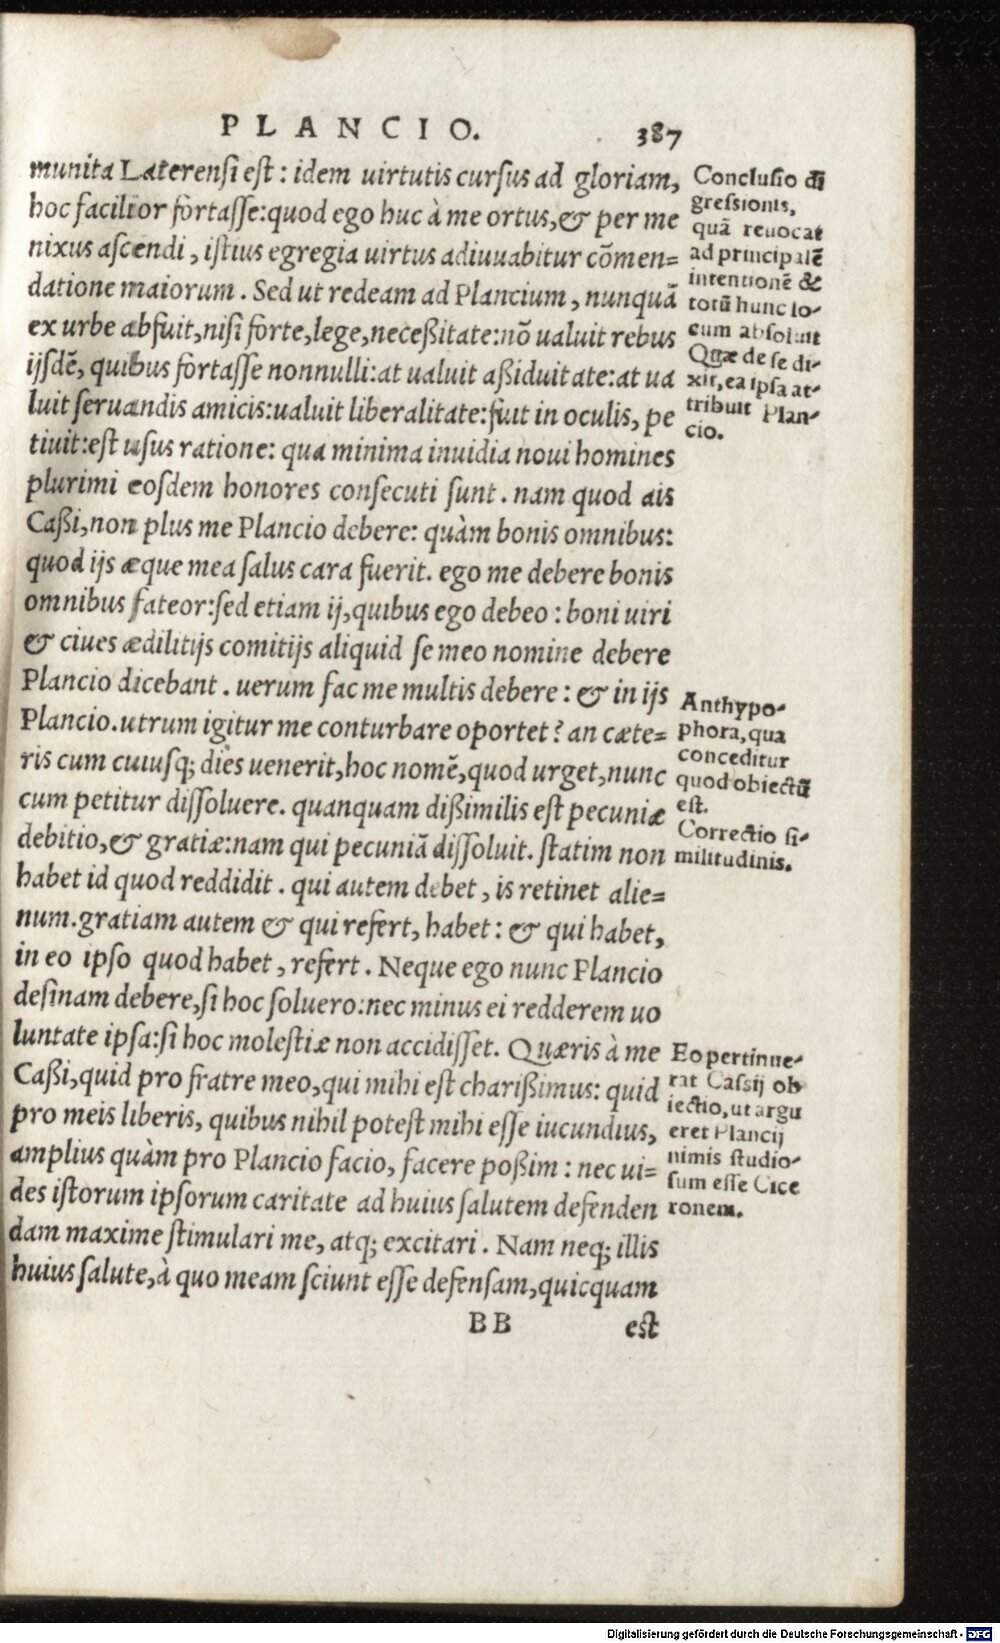 PLANCIO. 387
munita Laterensi est: idem uirtutis cursus ad gloriam,
hoc facilior fortasse: quod ego huc à me ortus, & per me
nixus ascendi, istius egregia uirtus adiuuabitur cõmen=
datione maiorum. Sed ut redeam ad Plancium, nunquã
ex urbe abfuit, nisi forte, lege, necessitate: nõ ualuit rebus
ijsdẽ, quibus fortasse nonnulli: at ualuit assiduitate: at ua
luit seruandis amicis: ualuit liberalitate: fuit in oculis, pe
tiuit: est usus ratione: qua minima inuidia noui homines
plurimi eosdem honores consecuti sunt. nam quod ais
Cassi, non plus me Plancio debere: quàm bonis omnibus:
quod ijs æque mea salus cara fuerit. ego me debere bonis
omnibus fateor: sed etiam ij, quibus ego debeo: boni uiri
& ciues ædilitijs comitijs aliquid se meo nomine debere
Plancio dicebant. uerum fac me multis debere: & in ijs
Plancio. utrum igitur me conturbare oportet? an cæte=
ris cum cuiusq; dies uenerit, hoc nomẽ, quod urget, nunc
cum petitur dissoluere. quanquam dissimilis est pecuniæ
debitio, & gratiæ: nam qui pecuniã dissoluit. statim non
habet id quod reddidit. qui autem debet, is retinet alie=
num. gratiam autem & qui refert, habet: & qui habet,
in eo ipso quod habet, refert. Neque ego nunc Plancio
desinam debere, si hoc soluero: nec minus ei redderem uo
luntate ipsa: si hoc molestiæ non accidisset. Quæris à me
Cassi, quid pro fratre meo, qui mihi est charissimus: quid
pro meis liberis, quibus nihil potest mihi esse iucundius,
amplius quàm pro Plancio facio, facere possim: nec ui=
des istorum ipsorum caritate ad huius salutem defenden
dam maxime stimulari me, atq; excitari. Nam neq; illis
huius salute, à quo meam sciunt esse defensam, quicquam
BB est
Conclusio di
gressionis,
quã reuocat
ad principalẽ
intentionẽ &
totũ hunc lo-
cum absoluit
Quæ de se di-
xit, ea ipsa at-
tribuit Plan-
cio.
Anthypo-
phora, qua
conceditur
quod obiectũ
est.
Correctio si-
militudinis.
Eo pertinue-
rat Cassij ob
iectio, ut argu
eret Plancij
nimis studio-
sum esse Cice
ronem.
Digitalisierung gefördert durch die Deutsche Forschungsgemeinschaft - DFG